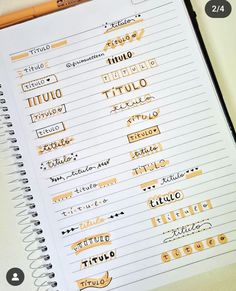 2/4
titulo
TÍTULO
TÍTULO
TÍTULO
@frivowettera
TÍTULO
TÍTULO
TÍTULO
TÍTULO
TÍTULO
TÍTULO
título
TÍTULO
TÍTULO
TÍTULO
TÍTULO
TÍTULO
título
TÍTULO
título
título
TÍTULO
título
TÍTULO
título
título
T·I·T·U·L·O
TÍTULO
título
TÍTULO
TÍTULO
título
TÍTULO
título
TÍTULO
TÍTULO
TÍTULO